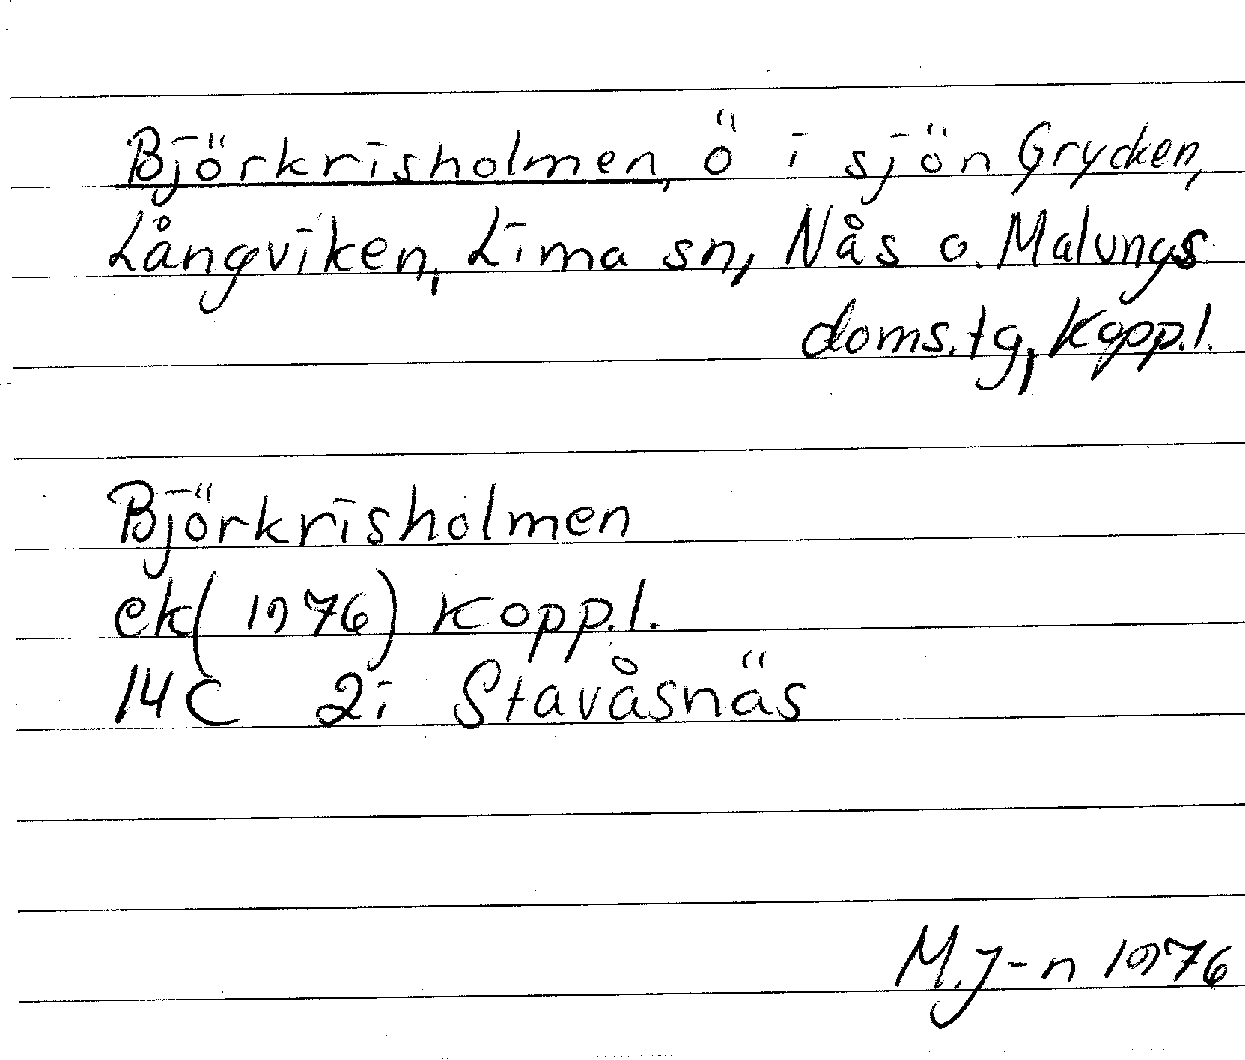 Björkrisholmen, ö i sjön Grycken,
Långviken, Lima sn, Nås o. Malungs
doms.tg, Kopp.l.
Björkrisholmen
ek(1976) Kopp.l.
14C 2i Stavåsnäs
M.J-n 1976